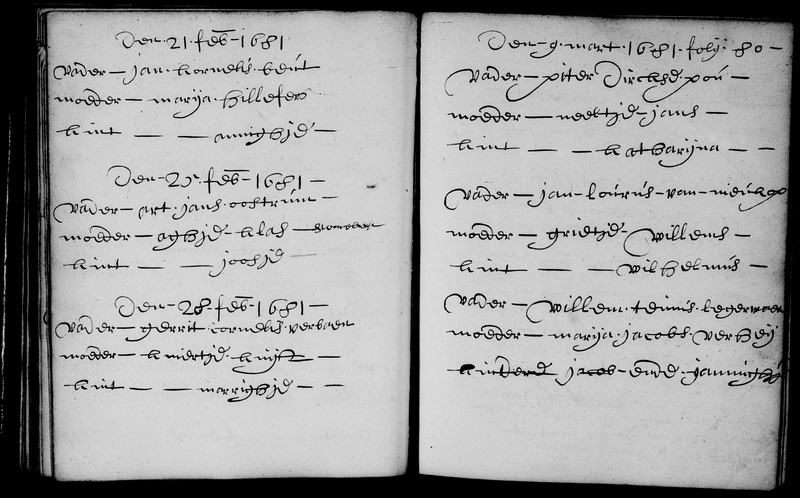 Den 21 feb 1681
vader — jan kornelis
moeder — marija hillefers
kint — — annighje —
Den feb 1681 —
vader — art jans oostrum —
moeder — aghje klas —
kint — — joosje —
Den 28 feb 1681 —
vader — gerrit cornelis verbaen
moeder — kniertje knijft —
kint — — marrighje — —
Den 9 mart 1681 foly 80 —
vader — pitter Dircks pou —
moeder — neeltje jans —
kint — — katharijna — —
vader — jan lourus van
moeder — grietje willems —
kint — — wilhelmus —
vader — willem teunis
moeder — marija jacobs verheij
kinder jacob ende jannighje